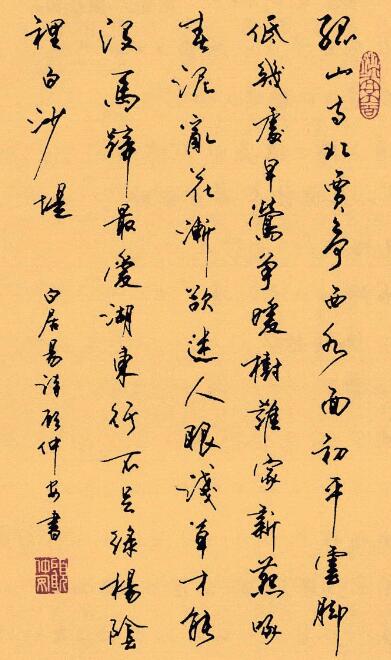 孤山寺北賈亭西水面初平雲腳
低幾處早鶯爭暖樹誰家新燕啄
春泥亂花漸欲迷人眼淺草才能
沒馬蹄最愛湖東行不足綠楊陰
裡白沙堤
白居易詩顧仲安書